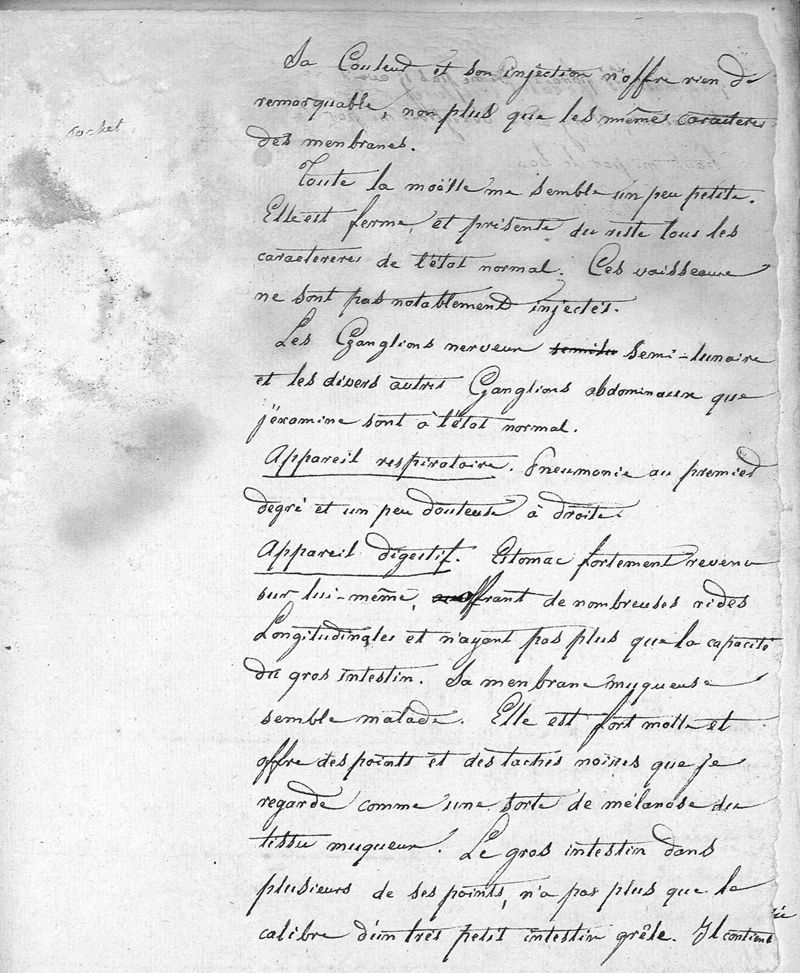 Sa Couleur et son injection n'offre rien de
remarquable, non plus que les mêmes caracteres
des menbranes.
cachet
Toute la moëlle me semble un peu petite.
Elle est ferme, et présente du reste tous les
caractereres de l'état normal. Ces vaisseaux
ne sont pas notablement injectés.
Les Ganglions nerveux semilu semi-lunaire
et les divers autres Ganglions abdominaux que
j'examine sont à l'état normal.
Appareil respiratoire. Pneumonie au premier
degré et un peu douteuse à droite.
Appareil digestif. Estomac fortement revenu
sur lui-même, offrant de nombreuses rides
Longitudinales et n'ayant pas plus que la capacité
du gros intestin. Sa menbrane muqueuse
semble malade. Elle est fort molle et
offre des points et des taches noires que je
regarde comme une sorte de mélanose du
tissu muqueux. Le gros intestin dans
plusieurs de ses points, n'a pas plus que le
calibre d'un très petit intestin grêle. Il contient